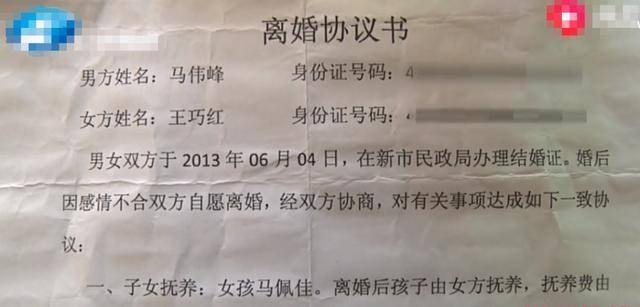 离婚协议书
男方姓名：马伟峰 身份证号码：4
女方姓名：王巧红 身份证号码：4
男女双方于 2013 年 06 月 04 日，在新市民政局办理结婚证。婚后
因感情不合双方自愿离婚，经双方协商，对有关事项达成如下一致协
议：
一、子女抚养：女孩马佩佳。离婚后孩子由女方抚养，抚养费由